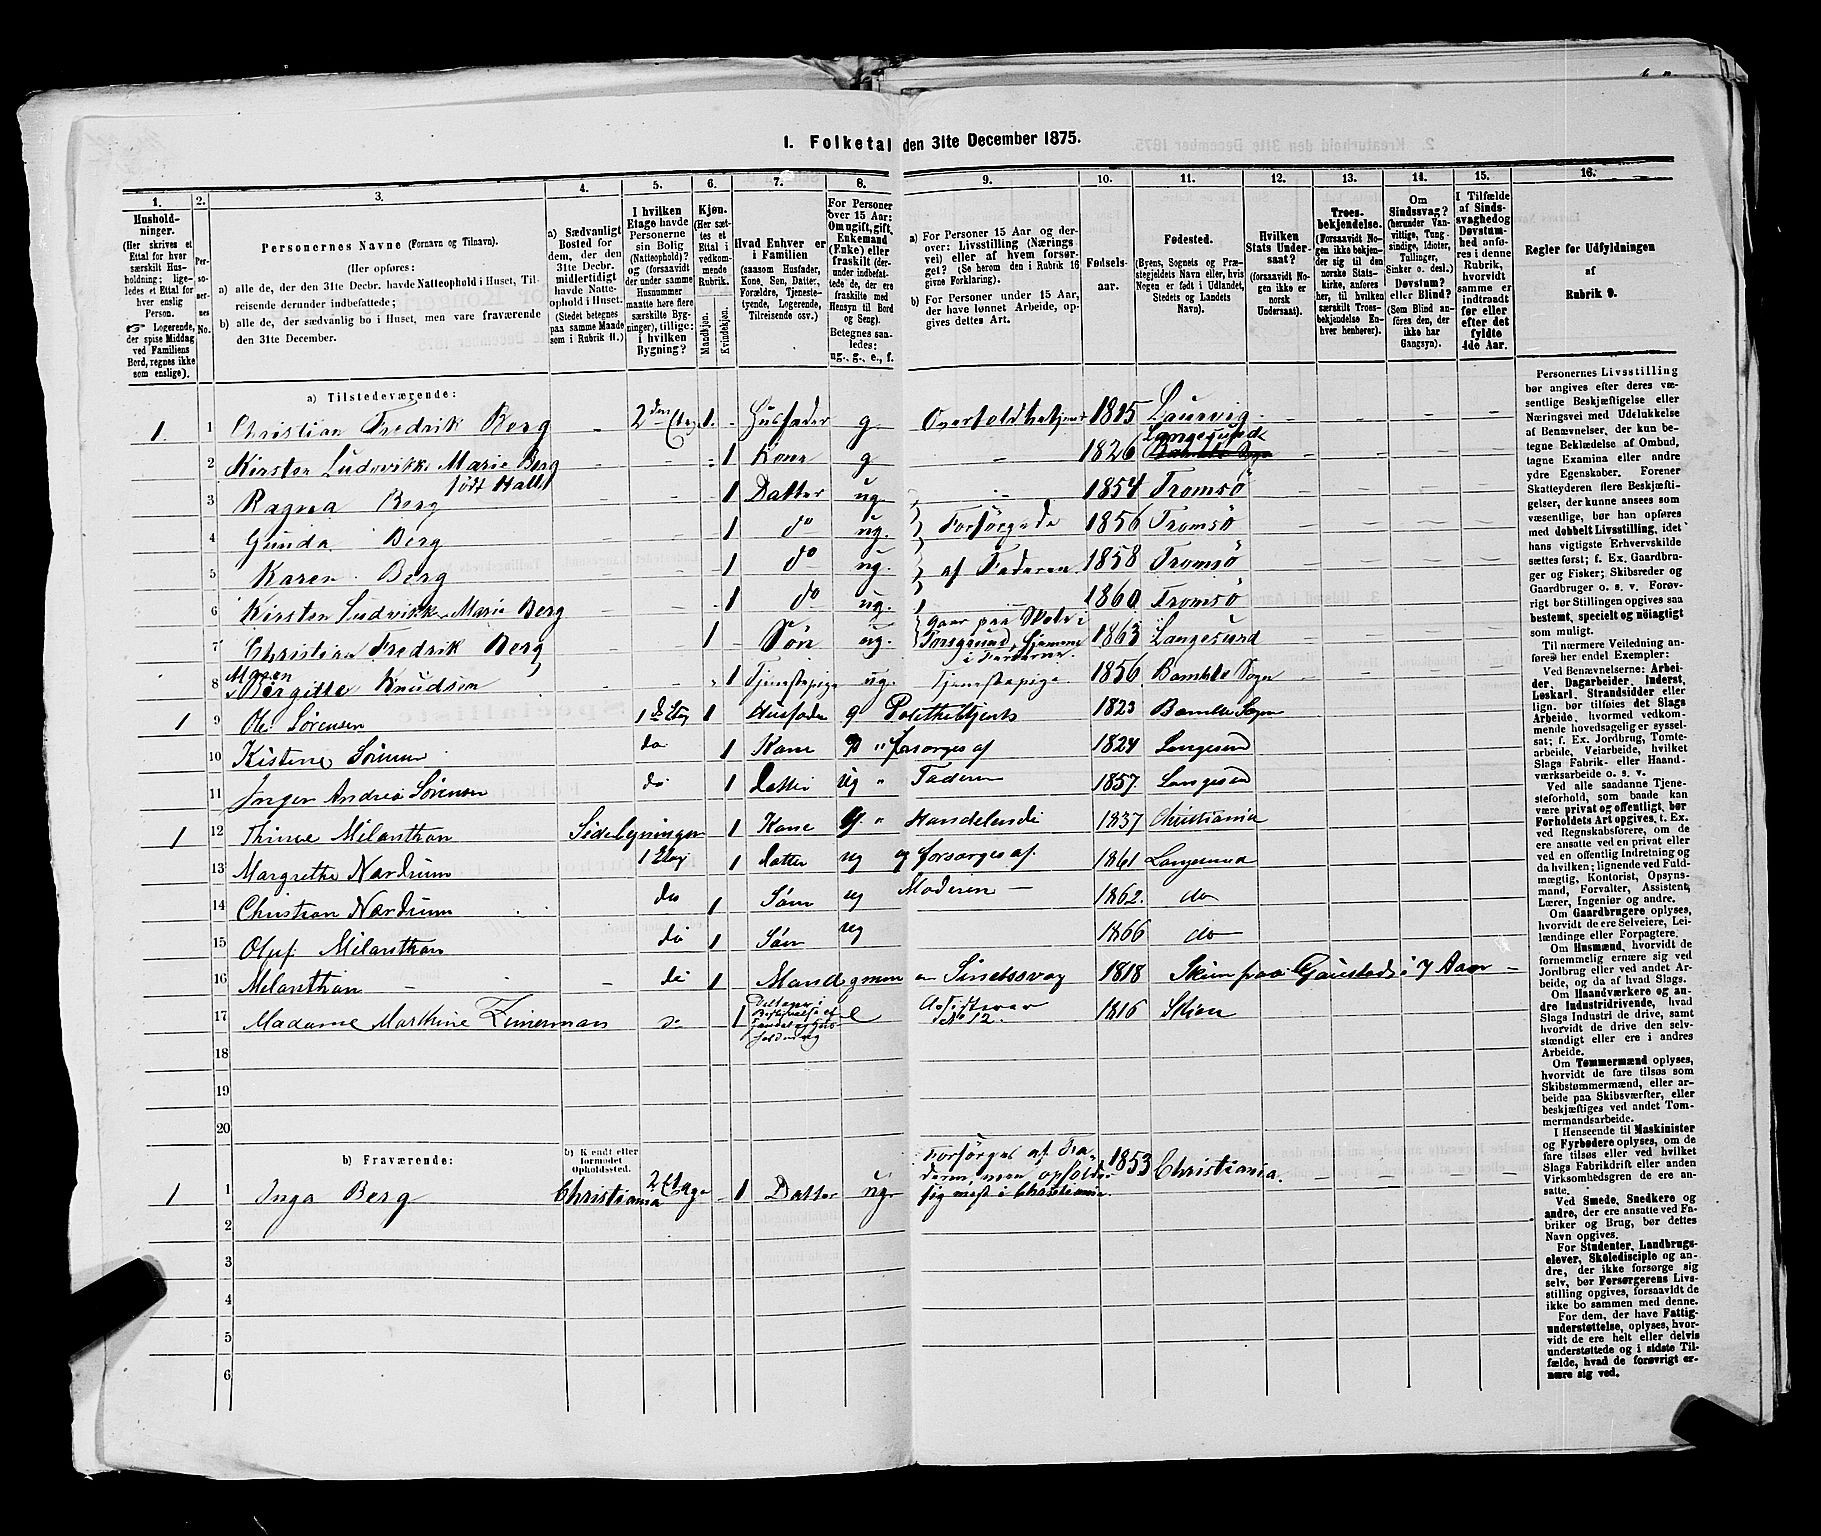 1. Folketal den 31te December 1875.
1. 2. 3. 4. 5. 6. 7. 8. 9. 10. 11. 12. 13. 14. 15. 16.
Hushold-
ninger.
(Her skrives et
Ettal for hver
særskilt Hus-
holdning; lige-
ledes et Ettal for
hver enslig
Person.
☞ Logerende,
der spise Middag
ved Familiens
Bord, regnes ikke
som enslige).
Per-
so-
ner-
nes
No.
Personernes Navne (Fornavn og Tilnavn).
(Her opføres:
a) alle de, der den 31te Decbr. havde Natteophold i Huset, Til-
reisende derunder indbefattede;
b) alle de, der sædvanlig bo i Huset, men vare fraværende
den 31te December.
a) Sædvanligt
Bosted for
dem, der den
31te Decbr.
midlertidigt
havde Natte-
ophold i Huset.
(Stedet betegnes
paa samme Maade
som i Rubrik 11.)
I hvilken
Etage havde
Personerne
sin Bolig
(Natteophold)?
og (forsaavidt
der under samme
Husnummer
maatte høre flere
særskilte Byg-
ninger), tillige:
i hvilken
Bygning?
Kjøn.
(Her sæt-
tes et
Ettal i
vedkom-
mende
Rubrik.
Mandkjøn.
Kvindekjøn.
Hvad Enhver er
i Familien
(saasom Husfader,
Kone, Søn, Datter,
Forældre, Tjeneste-
tyende, Logerende,
Tilreisende osv.)
For Personer
over 15 Aar:
Om ugift, gift,
Enkemand
(Enke) eller
fraskilt (der-
under indbefat-
tede de, der ere
fraskilte med
Hensyn til Bord
og Seng).
Betegnes saa-
ledes:
ug., g., e., f.
a) For Personer 15 Aar og der-
over: Livsstilling (Nærings
vei) eller af hvem forsør-
get? (Se herom den i Rubrik 16
givne Forklaring).
b) For Personer under 15 Aar,
der have lønnet Arbeide, op-
gives dettes Art.
Fødsels-
aar.
Fødested.
(Byens, Sognets og Præ-
stegjeldets Navn eller, hvis
Nogen er født i Udlandet,
Stedets og Landets
Navn).
Hvilken
Stats Under-
saat?
(forsaavidt No-
gen ikke er
norsk
Undersaat).
Troes-
bekjendelse.
(Forsaavidt No-
gen ikke bekjen-
der sig til den
norske Stats-
kirke, anføres
her, til hvilken
særskilt Troes-
bekjendelse En-
hver henhører).
Om
Sindssvag?
(herunder Van-
vittige, Tung-
sindige, Idioter,
Tullinger,
Sinker o. desl.)
Døvstum?
eller Blind?
(Som Blind an-
føres den, der
ikke har
Gangsyn).
I Tilfælde
af Sinds-
svaghed og
Døvstum-
hed anfø-
res i denne
Rubrik,
hvorvidt
samme er
indtraadt
før eller
efter det
fyldte
4de Aar.
Regler for Udfyldningen
af
Rubrik 9.
a) Tilstedeværende:
1. 1 Christian Fredrik Berg – 2den Etag. 1. – Husfader g 1815 Laurvig – – – –
2 Kirsten Ludovikke Marie Berg født Hall – – – 1 Kone g – 1826 Langesund – – – –
3 Ragna Berg – – – 1 Datter ug. – 1854 Tromsö – – – –
4 Gunda Berg – – – 1 do ug. Forsörgede 1856 Tromsö – – – –
5 Karen Berg – – – 1 do ug. af Faderen 1858 Tromsö – – – –
6 Kirsten Ludvikke Marie Berg – – – 1 do ug. – 1860 Tromsö – – – –
7 Christian Fredrik Berg – – 1 – Sön ug. Gaar paa Skole i Porsgrund, hjemme i Ferierne. 1863 Langesund – – – –
8 Maren Birgitte Knudsen – – – 1 Tjenestepige ug. Tjenestepige 1856 Bamble Sogn – – – –
1 9 Ole Sörensen 1ste Etag 1 Husfader g Politibetjent 1823 Bamble Sogn
10 Kistine Sörensen do 1 Kone g " forsorges af 1824 Langesund
11 Inger Andrea Sörensen do 1 datter ug " Faderen 1857. Langesund
1 12 Thrine Milanthon Sidebygningen 1 Kone g. " Handelende 1837 Christiania
13 Margrethe Nærdrum 1 Etag 1 datter ug og forsorges af 1861 Langesund
14 Christian Nærdrum do 1 Sön ug Moderen – 1862. do
15 Oluf Milanthon do 1 Sön ug 1866 do
16 Milanthon – – do 1 Mand g men er Sindssvag 1818 Skien paa Gaustad i 7 Aar –
17 Madame Marthine Zimerman do 1 e 1816 Skien
18
19
20
b) Fraværende:
b) Kjendt eller
formodet
Opholdssted.
1 1 Inga Berg Christiania 2 Etage – 1 Datter ug. Forsörges af Fa-
deren, men opholder
sig mest i Christiania. 1853 Christiania. – – – –
2
3
4
5
6
Personernes Livsstilling
bør angives efter deres væ-
sentlige Beskjæftigelse eller
Næringsvei med Udelukkelse
af Benævnelser, der kun be-
tegne Beklædelse af Ombud,
tagne Examina eller andre
ydre Egenskaber. Forener
Skatteyderen flere Beskjæfti-
gelser, der kunne ansees som
væsentlige, bør han opføres
med dobbelt Livsstilling, idet
hans vigtigste Erhvervskilde
sættes først; f. Ex. Gaardbru-
ger og Fisker; Skibsreder og
Gaardbruger o. s. v. Forøv-
rigt bør Stillingen opgives saa
bestemt, specielt og nöiagtigt
som muligt.
Til nærmere Veiledning an-
føres her endel Exempler:
Ved Benævnelserne: Arbei-
der, Dagarbeider, Inderst,
Løskarl, Strandsidder eller
lign. bør tilføies det Slags
Arbeide, hvormed vedkom-
mende hovedsagelig er syssel-
sat; f. Ex. Jordbrug, Tomte-
arbeide, Veiarbeide, hvilket
Slags Fabrik- eller Haand-
værksarbeide o. s. v.
Ved alle saadanne Tjene-
steforhold, som baade kan
være privat og offentligt, bør
Forholdets Art opgives, f. Ex.
ved Regnskabsførere, om de
ere ansatte ved en privat eller
ved en offentlig Indretning og
da hvilken; lignende ved Fuld-
mægtig, Kontorist, Opsyns-
mand, Forvalter, Assistent,
Lærer, Ingeniør og andre.
Om Gaardbrugere oplyses,
hvorvidt de ere Selveiere, Lei-
lændinge eller Forpagtere.
Om Husmænd, hvorvidt de
fornemmelig ernære sig ved
Jordbrug eller ved andet Ar-
beide, og da af hvad Slags.
Om Haandværkere og an-
dre Industridrivende, hvad
Slags Industri de drive, samt
hvorvidt de drive den selv-
stændigt eller ere i andres
Arbeide.
Om Tømmermænd oplyses,
hvorvidt de fare tilsøs som
Skibstømmermænd, eller ar-
beide paa Skibsværfter, eller
beskjæftiges ved andet Tøm-
mermandsarbeide.
I Henseende til Maskinister
og Fyrbødere oplyses, om de
fare tilsøs eller ved hvilket
Slags Fabrikdrift eller anden
Virksomhedsgren de ere an-
satte.
Ved Smede, Snedkere og
andre, der ere ansatte ved Fa-
briker og Brug, bør dettes
Navn opgives.
For Studenter, Landbrugs-
elever, Skoledisciple og an-
dre, der ikke forsørge sig
selv, bør Forsørgerens Livs-
stilling opgives, forsaavidt de
ikke bo sammen med denne.
For dem, der have Fattig-
understøttelse, oplyses, hvor-
vidt de ere helt eller delvis
understøttede og i sidste Til-
fælde, hvad de forøvrigt er-
nære sig ved.